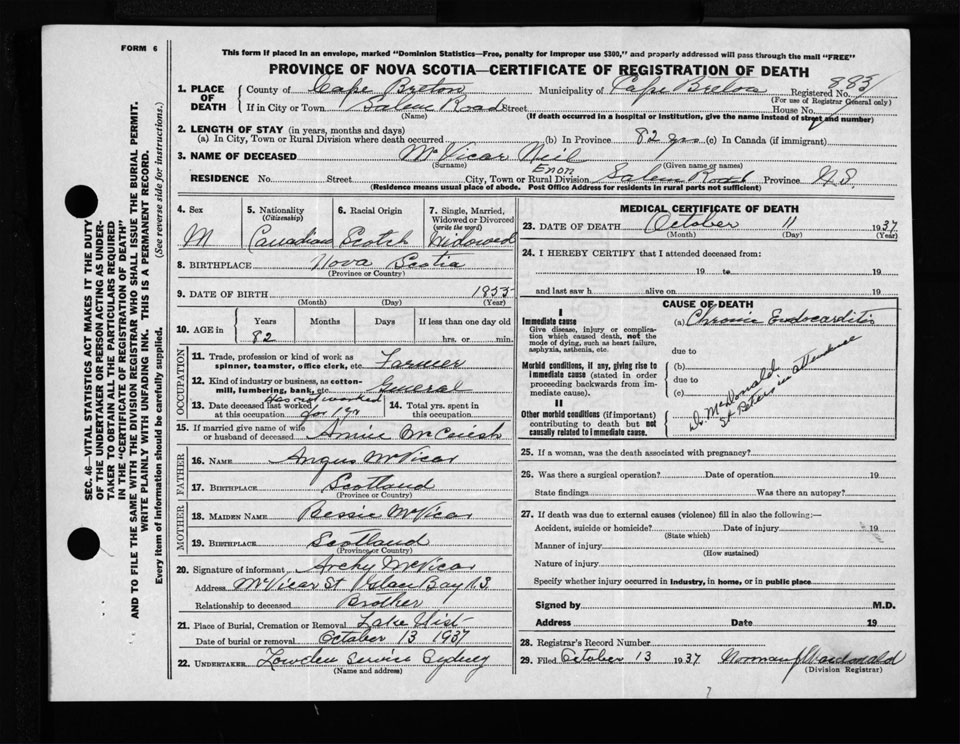 FORM 6
This form if placed in an envelope, marked "Dominion Statistics—Free, penalty for improper use $300," and properly addressed will pass through the mail "FREE"
PROVINCE OF NOVA SCOTIA—CERTIFICATE OF REGISTRATION OF DEATH
1. PLACE OF DEATH
County of Cape Breton Municipality of Cape Breton Registered No. 883
(For use of Registrar General only)
If in City or Town Salem Road Street House No.
(Name) (If death occurred in a hospital or institution, give the name instead of street and number)
2. LENGTH OF STAY (in years, months and days)
(a) In City, Town or Rural Division where death occurred (b) In Province 82 yrs (c) In Canada (if immigrant)
3. NAME OF DECEASED McVicar Neil
(Surname) (Given name or names)
Enon
RESIDENCE No. Street City, Town or Rural Division Salem Road Province N.S.
(Residence means usual place of abode. Post Office Address for residents in rural parts not sufficient)
4. Sex M
5. Nationality (Citizenship) Canadian
6. Racial Origin Scotch
7. Single, Married, Widowed or Divorced (write the word) Widowed
8. BIRTHPLACE Nova Scotia
(Province or Country)
9. DATE OF BIRTH 1855
(Month) (Day) (Year)
10. AGE in Years Months Days If less than one day old
82 hrs. or min.
OCCUPATION
11. Trade, profession or kind of work as spinner, teamster, office clerk, etc. Farmer
12. Kind of industry or business, as cotton-mill, lumbering, bank, etc. General
13. Date deceased last worked at this occupation Has not worked for 1 yr
14. Total yrs. spent in this occupation
15. If married give name of wife or husband of deceased Annie McCuish
FATHER
16. NAME Angus McVicar
17. BIRTHPLACE Scotland
(Province or Country)
MOTHER
18. MAIDEN NAME Bessie McVicar
19. BIRTHPLACE Scotland
(Province or Country)
20. Signature of informant Archy McVicar
Address McVicar St Glace Bay
Relationship to deceased Brother
21. Place of Burial, Cremation or Removal Lake Uist
Date of burial or removal October 13 1937
22. UNDERTAKER Lowden Service Sydney
(Name and address)
MEDICAL CERTIFICATE OF DEATH
23. DATE OF DEATH October 11 1937
(Month) (Day) (Year)
24. I HEREBY CERTIFY that I attended deceased from:
19 to 19
and last saw h alive on 19
CAUSE OF DEATH
I
Immediate cause (a) Chronic Endocarditis
Give disease, injury or complication which caused death, not the mode of dying, such as heart failure, asphyxia, asthenia, etc.
due to
Morbid conditions, if any, giving rise to immediate cause (stated in order proceeding backwards from immediate cause).
(b)
due to
(c)
II
Other morbid conditions (if important) contributing to death but not causally related to immediate cause.
D. McDonald
St Peters in attendance
25. If a woman, was the death associated with pregnancy?
26. Was there a surgical operation? Date of operation 19
State findings Was there an autopsy?
27. If death was due to external causes (violence) fill in also the following:—
Accident, suicide or homicide? Date of injury 19
(State which)
Manner of injury
(How sustained)
Nature of injury
Specify whether injury occurred in industry, in home, or in public place
Signed by M.D.
Address Date 19
28. Registrar's Record Number
29. Filed October 13 1937 Norman J Macdonald
(Division Registrar)
SEC. 46—VITAL STATISTICS ACT MAKES IT THE DUTY
OF THE UNDERTAKER OR PERSON ACTING AS UNDER-
TAKER TO OBTAIN ALL THE PARTICULARS REQUIRED
IN THE "CERTIFICATE OF REGISTRATION OF DEATH"
AND TO FILE THE SAME WITH THE DIVISION REGISTRAR WHO SHALL ISSUE THE BURIAL PERMIT.
WRITE PLAINLY WITH UNFADING INK. THIS IS A PERMANENT RECORD.
Every item of information should be carefully supplied. (See reverse side for instructions.)